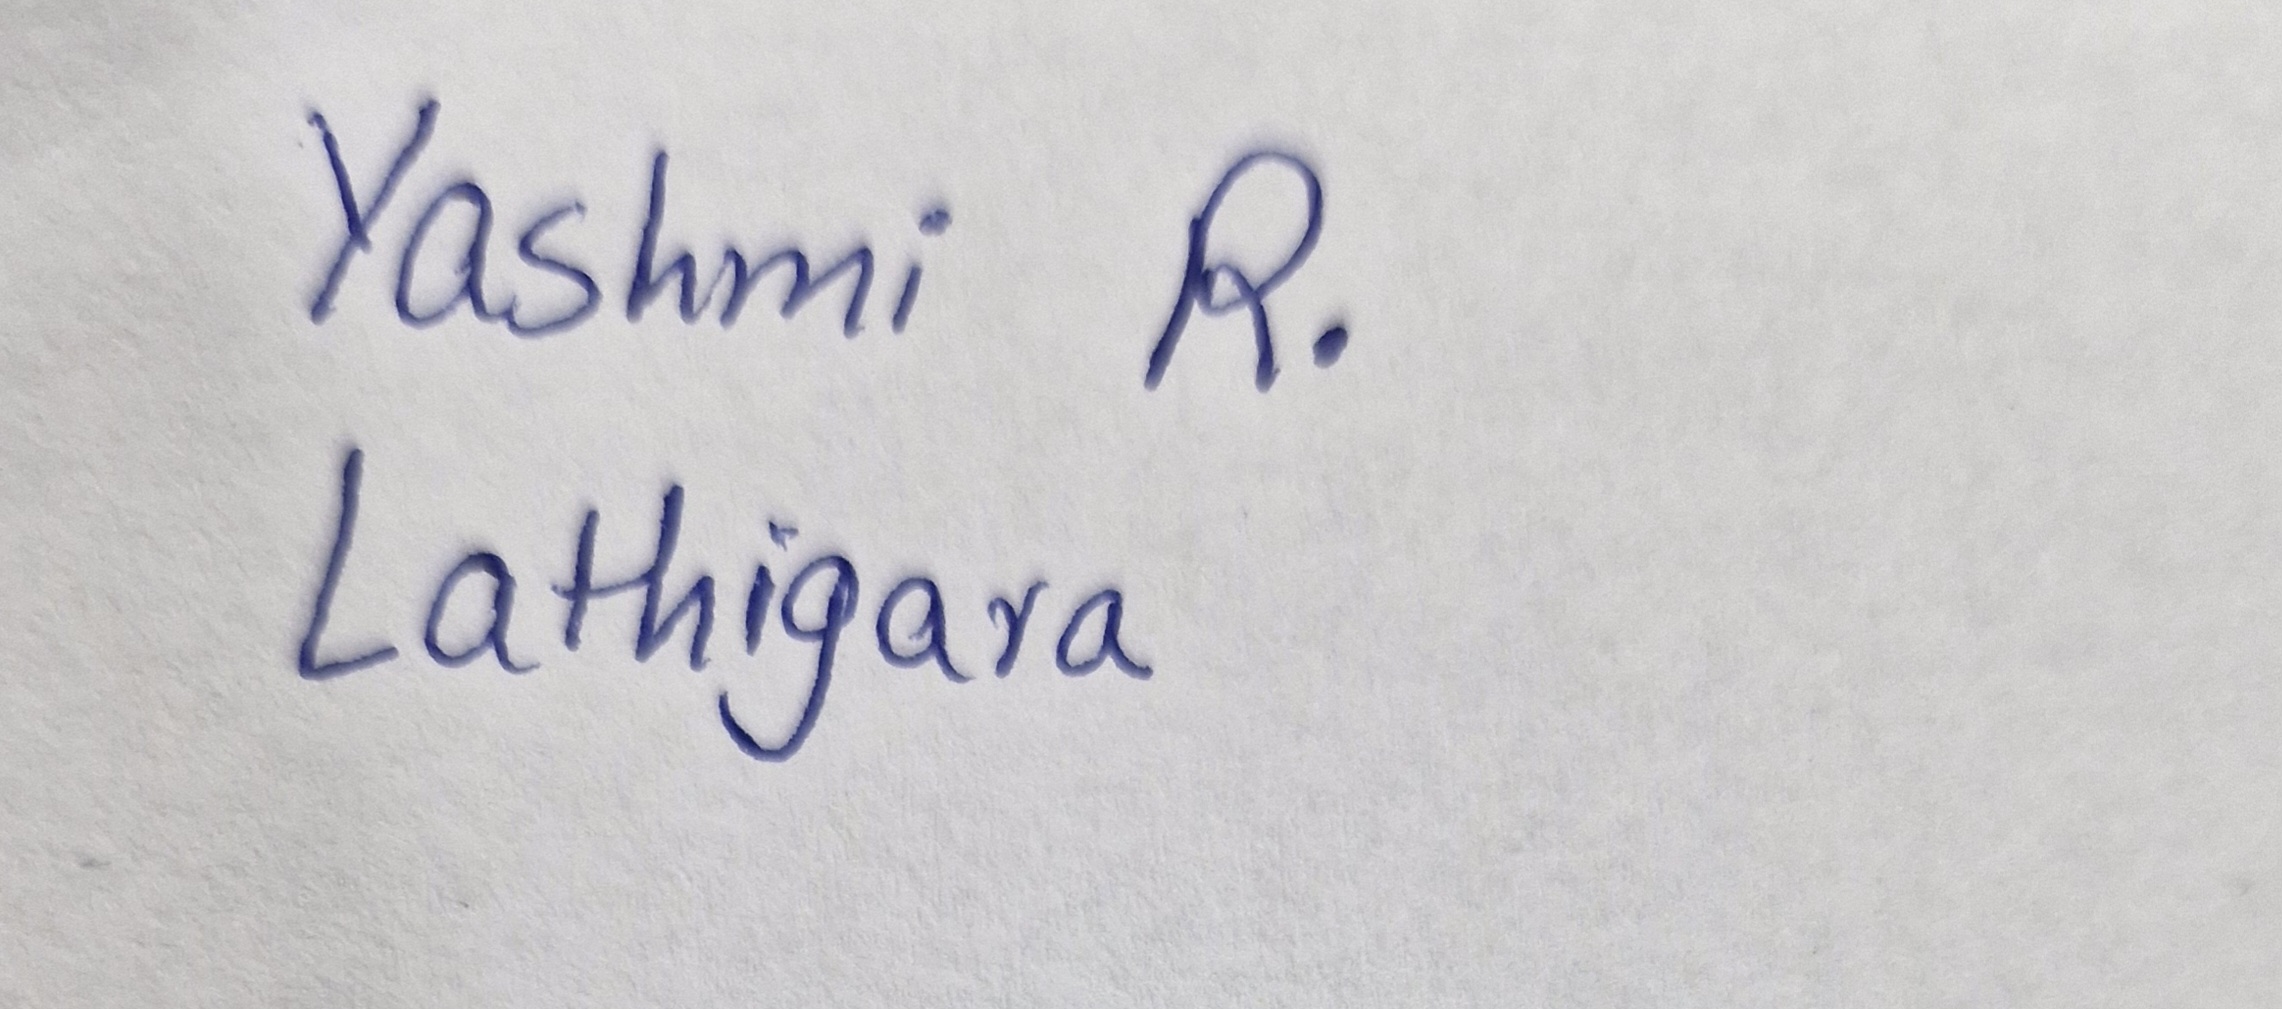 Yashmi R.
Lathigara